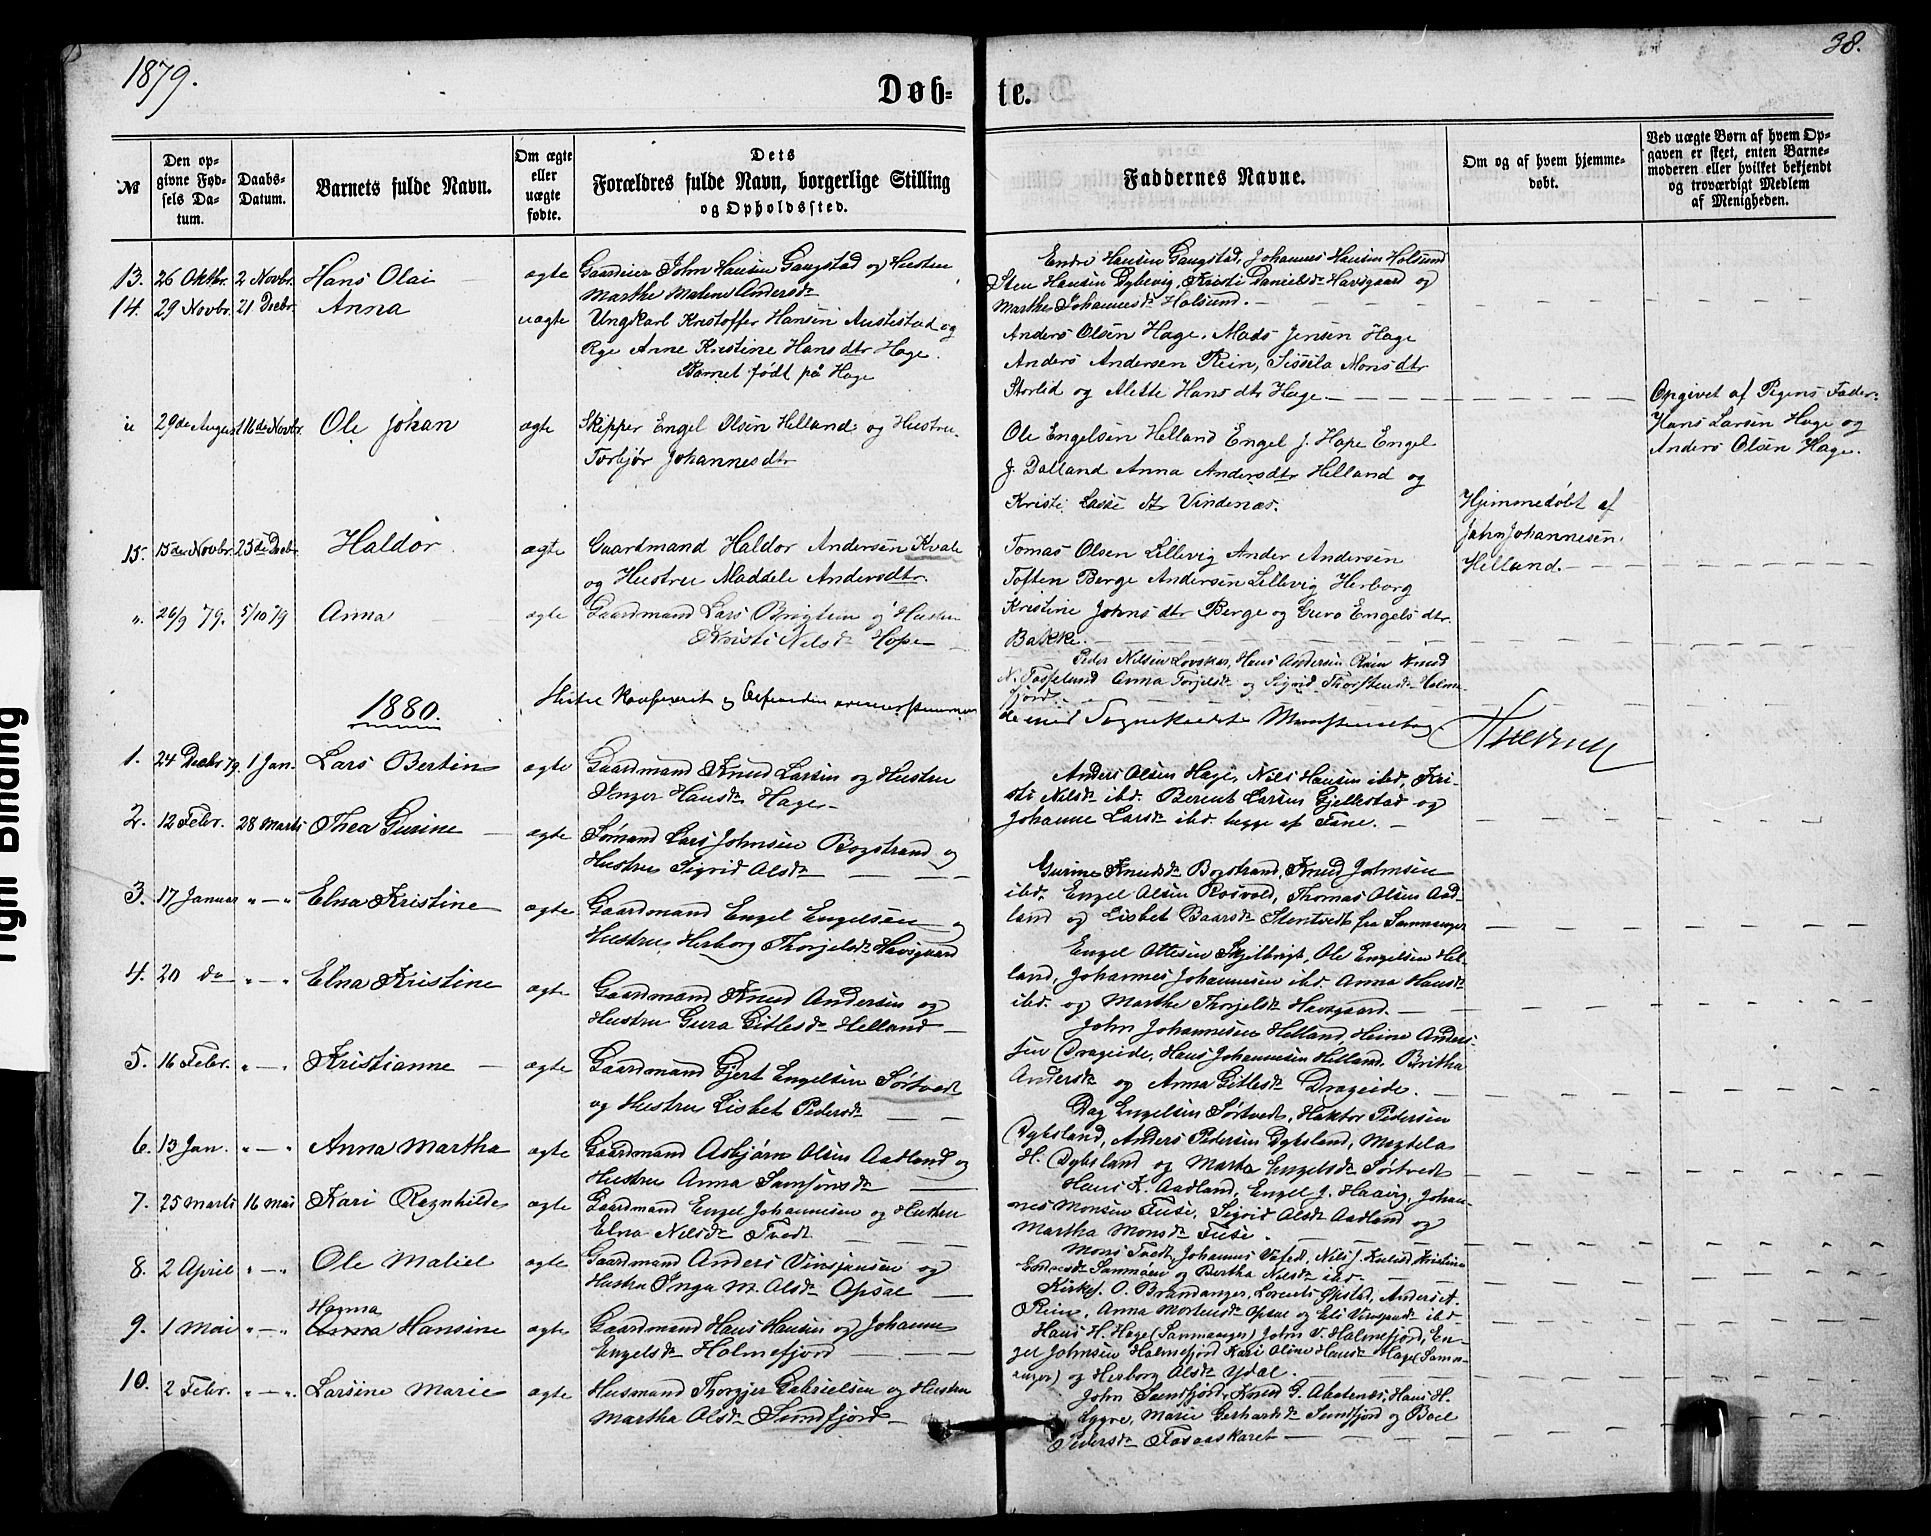 1879.
38.
Døb-
te.
№
Den op-
givne Fød-
sels Da-
tum.
Daabs-
Datum.
Barnets fulde Navn.
Om ægte
eller
uægte
fødte.
Dets
Forældres fulde Navn, borgerlige Stilling
og Opholdssted.
Faddernes Navne.
Om og af hvem hjemme-
døbt.
Ved uægte Børn af hvem Op-
gaven er skeet, enten Barne-
moderen eller hvilket bekjendt
og troværdigt Medlem
af Menigheden.
13. 26 Oktbr. 2 Novbr. Hans Olai ægte Gaardeier John Hansen Gangstad og Hustru
Marthe Malene Andersdr
Endre Hansen Gangstad, Johannes Hansen Holsund
Sten Hansen Dybevig, Kristi Danielsdr Havsgaard og
Marthe Johannesdr Holsund.
14. 29 Novbr. 21 Decbr. Anna uægte Ungkarl Kristoffer Hansen Austestad og
Pge Anne Kristine Hansdtr Hage.
Barnet født på Hage
Anders Olsen Hage, Mads Jensen Hage
Anders Andersen Rein, Sissila Monsdtr
Storlid og Alette Hansdtr Hage
Opgivet af Pigens Fader
Hans Larsen Hage og
Anders Olsen Hage.
" 29de August 16de Novbr. Ole Johan ægte Skipper Engel Olsen Helland og Hustru
Torbjør Johannesdtr
Ole Engelsen Helland Engel J. Hope Engel
J. Dalland Anna Andersdtr Helland og
Kristi Lassedtr Vindenæs.
Hjemmedøbt af
John Johannesen
Helland.
15. 15de Novbr. 25de Decbr. Haldor ægte Gaardmand Haldor Andersen Kvale
og Hustru Maddele Andersdtr.
Tomas Olsen Lillevig Ander Andersen
Toften Berge Andersen Lillevig Herborg
Kristine Johnsdtr Berge og Guro Engelsdtr.
Bakke.
". 26/9 79. 5/10 79 Anna ægte Gaardmand Lars Brigtsen og Hustru
Kristi Nilsdr Hope
Peder Nilsen Lovskar, Hans Andersen Rein Knud
N. Tosseland Anna Torgilsdr og Sigrid Thorstensdr Holme-
fjord
1880.
Hidtil Konfereret og Befunden overensstemmen-
de med Sognekaldets Ministerialbog
1. 24 Decbr 79. 1 Jan. Lars Bertin ægte Gaardmand Knud Larsen og Hustru
Inger Hansdr Hage
Anders Olsen Hage, Nils Hansen ibd, Kri-
sti Nilsdr ibd. Berent Larsen Gjellestad og
Johanne Larsdr ibd. begge af Fane.
2. 12 Febr. 28 Marts Thea Gurine ægte Sømand Lars Johnsen Bogstrand og
Hustru Sigrid Olsdr
Gurine Knudsdr Bogstrand, Knud Johnsen
ibd. Engel Olsen Rosvold, Thomas Olsen Aad-
land og Lisbet Baarsdr Stentvedt fra Sammanger
3. 17 Januar " — " Elna Kristine ægte Gaardmand Engel Engelsen og
Hustru Herborg Thorjelsdr Havsgaard
Engel Ottesen Skjelbreit, Ole Engelsen Hel-
land, Johannes Johannesen ibd. Anna Hansdr
ibd. og Marthe Thorjelsdr Havsgaard.
4. 20 do " — " Elna Kristine ægte Gaardmand Knud Andersen og
Hustru Gura Gitlesdr Helland
John Johannesen Helland, Heine Anders-
sen Drageide, Hans Johannesen Helland, Britha
Andersdr og Anna Gitlesdr Drageide.
5. 16 Febr. " — " Kristianne ægte Gaardmand Gjert Engelsen Sørtvedt
og Hustru Lisbet Pedersdr
Dag Engelsen Sørtvedt, Haktor Pedersen
Dybsland, Anders Pedersen Dybsland, Magtela
H. Dybsland og Marta Engelsdr Sørtvedt
6. 13 Jan. " — " Anna Martha ægte Gaardmand Asbjørn Olsen Aadland og
Hustru Anna Samsonsdr
Hans K. Aadland, Engel J. Haavig, Johan-
nes Monsen Fuse, Sigrid Olsdr Aadland og
Martha Monsdr Fuse.
7. 25 Marts 16 Mai Kari Ragnhilde ægte Gaardmand Engel Johannesen og Hustru
Elna Nilsdr Tvedt
Mons Tvedt, Johannes Vefed, Nils J. Kulild Kristina
Endresdr Sammøen og Bertha Nilsdr ibd.
8. 2 April " — " Ole Maliel ægte Gaardmand Anders Vinsjansen og
Hustru Inga M. Olsdr Opsal
Kirkes. O. Brandanger, Lorents Opstad, Anders A.
Rein, Anna Mortensdr Opsal og Eli Vinsjansdr ibd.
9. 1 Mai " — " Hanna
Anna Hansine ægte Gaardmand Hans Hansen og Johanne
Engelsdr Holmefjord
Hans H. Hage (Sammanger) John V. Holmefjord, En-
gel Johnsen Holmefjord Kari Oline Hansdr Hage (Samm-
anger) og Herborg Olsdr Ydal.
10. 2 Febr. " — " Larsine Marie ægte Husmand Thorgjer Gabrielsen og Hustru
Martha Olsdr Sundfjord
John Sundfjord, Knud G. Aboténæs, Hans H.
Lygre, Marie Gerhardsdr Sundfjord og Boel
Pedersdr Fosaaskaret
Tight Binding